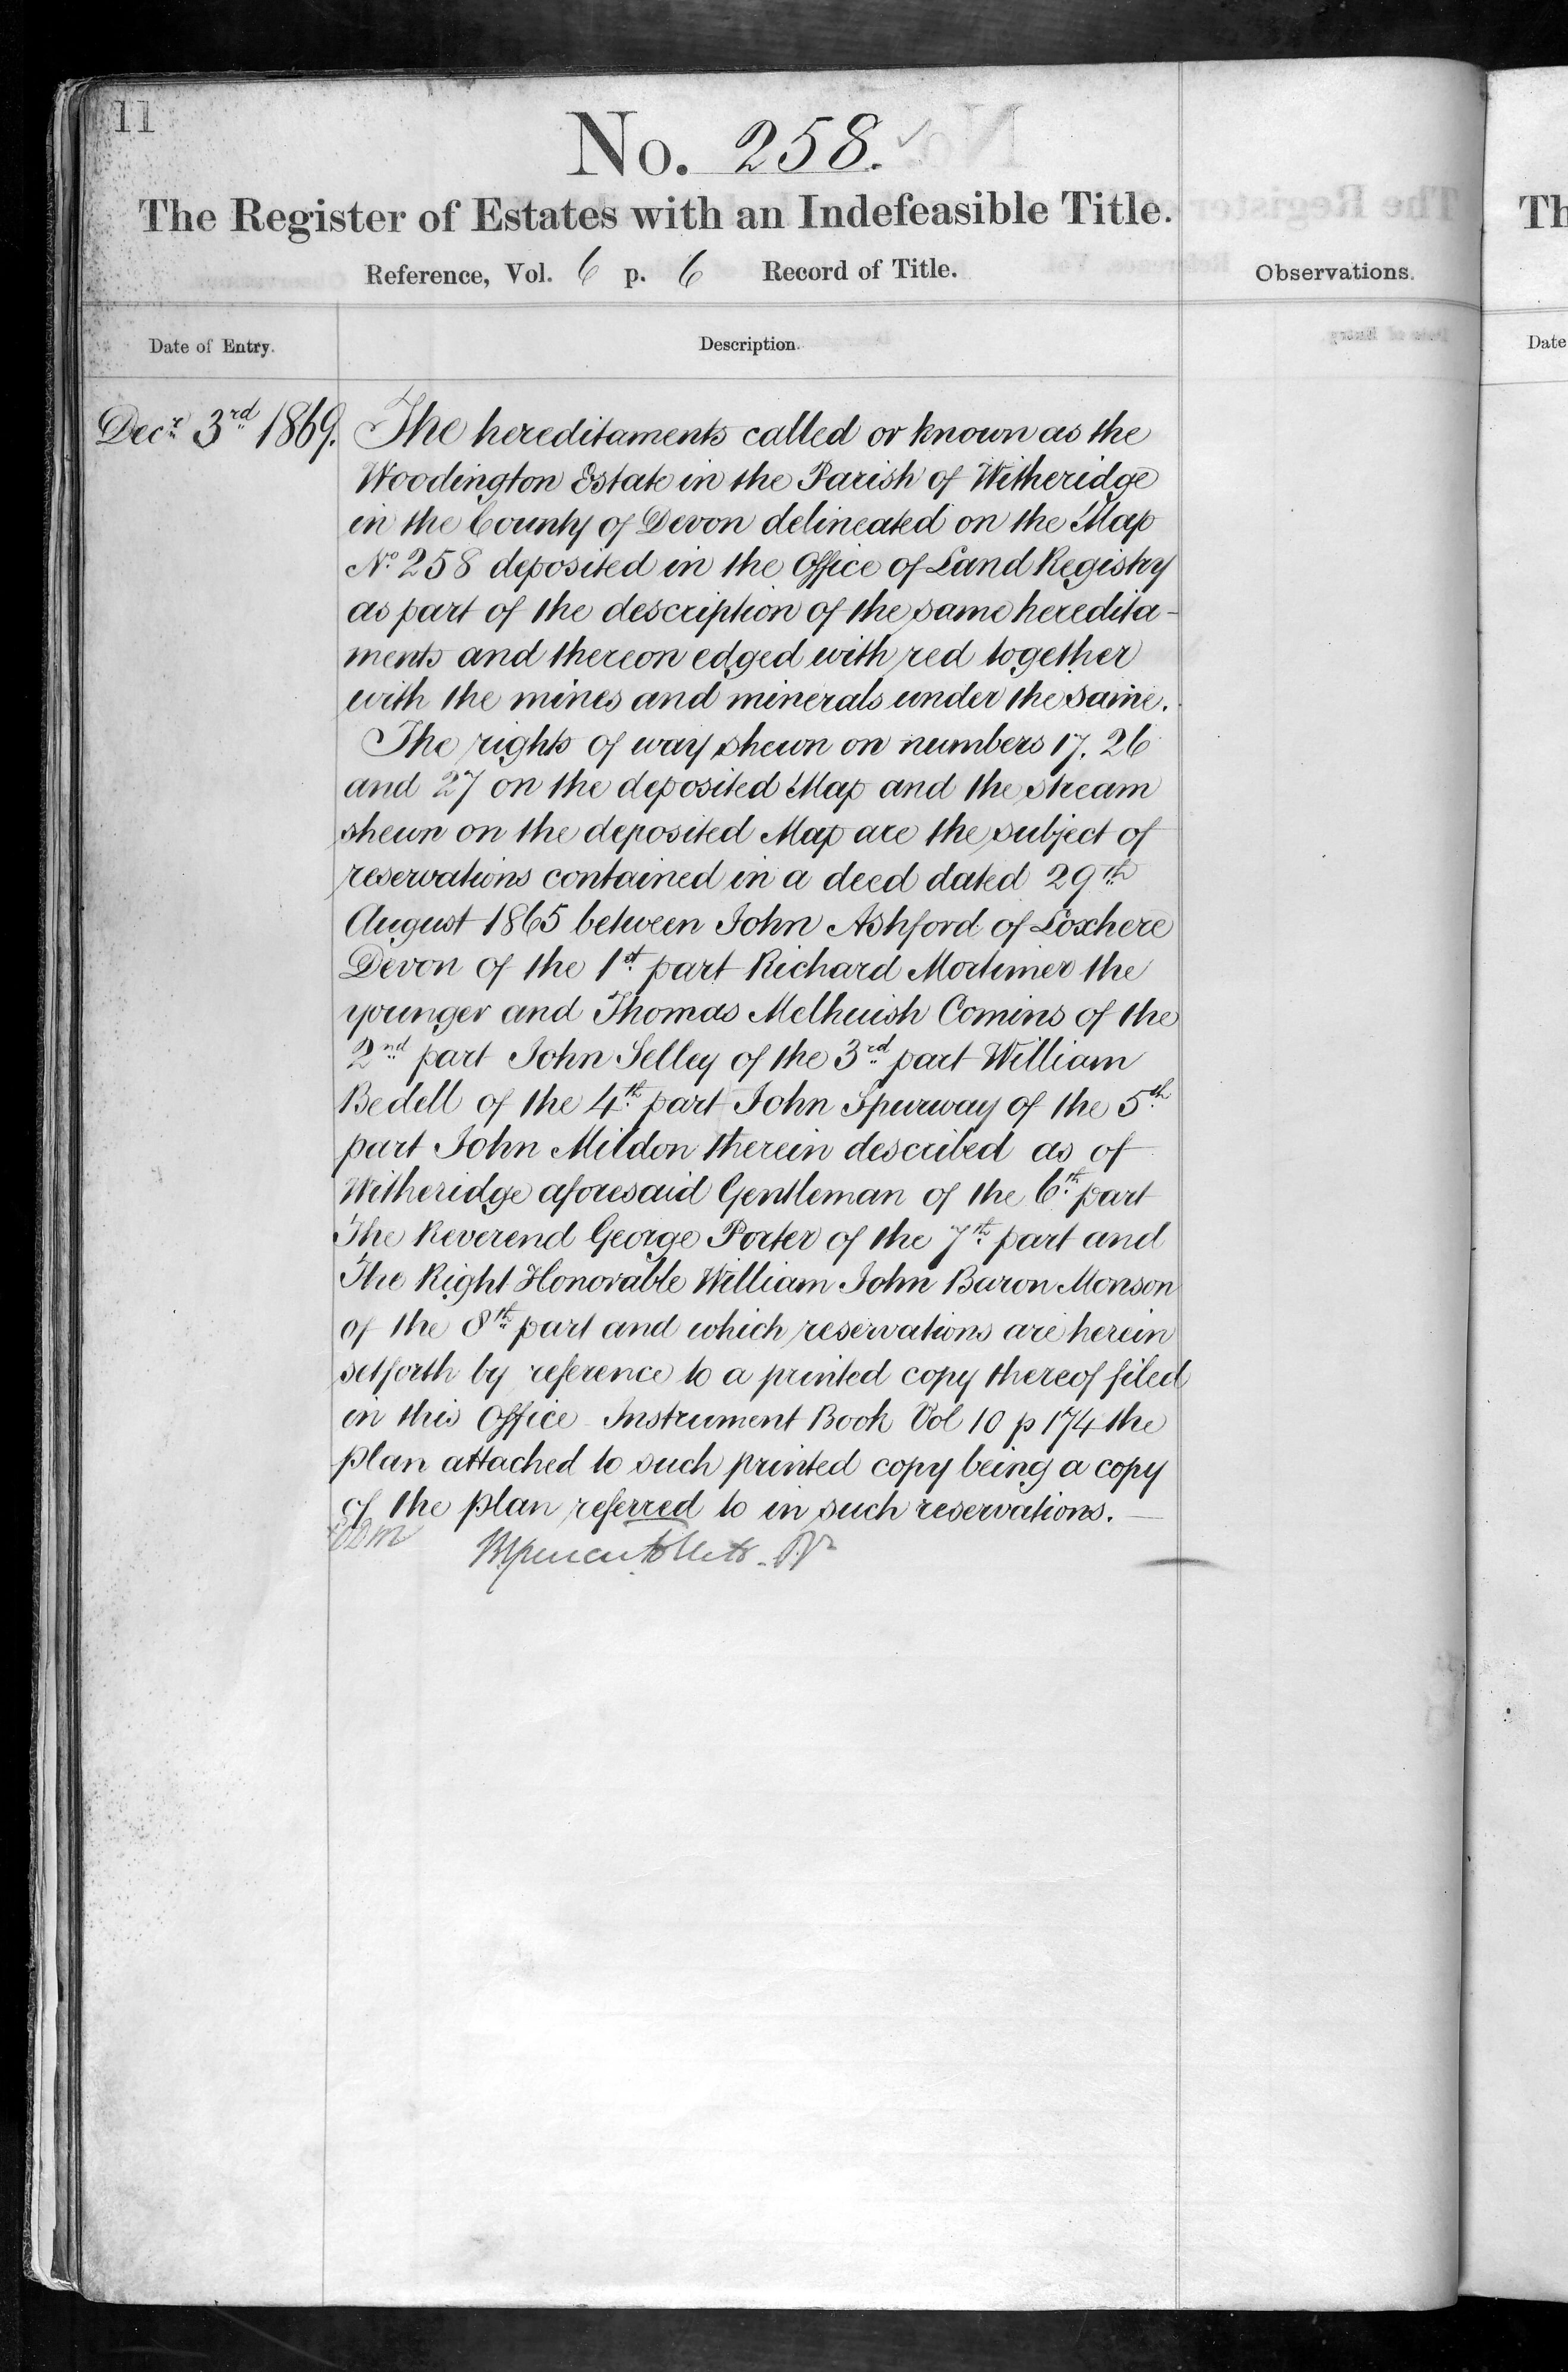 11
No. 258.
The Register of Estates with an Indefeasible Title.
Reference, Vol. 6 p. 6 Record of Title.
Observations.
Date of Entry.
Description.
Decr 3rd 1869.
The hereditaments called or known as the
Woodington Estate in the Parish of Witheridge
in the County of Devon delineated on the Map
No 258 deposited in the Office of Land Registry
as part of the description of the same heredita-
ments and thereon edged with red together
with the mines and minerals under the same.
The rights of way shewn on numbers 17. 26
and 27 on the deposited Map and the stream
shewn on the deposited Map are the subject of
reservations contained in a deed dated 29th
August 1865 between John Ashford of Loxhere
Devon of the 1st part Richard Mortimer the
younger and Thomas Melhuish Comins of the
2nd part John Selley of the 3rd part William
Bedell of the 4th part John Spurway of the 5th
part John Mildon therein described as of
Witheridge aforesaid Gentleman of the 6th part
The Reverend George Porter of the 7th part and
The Right Honorable William John Baron Monson
of the 8th part and which reservations are herein
setforth by reference to a printed copy thereof filed
in this Office Instrument Book Vol 10 p 174 the
plan attached to such printed copy being a copy
of the plan referred to in such reservations.
Th
Date